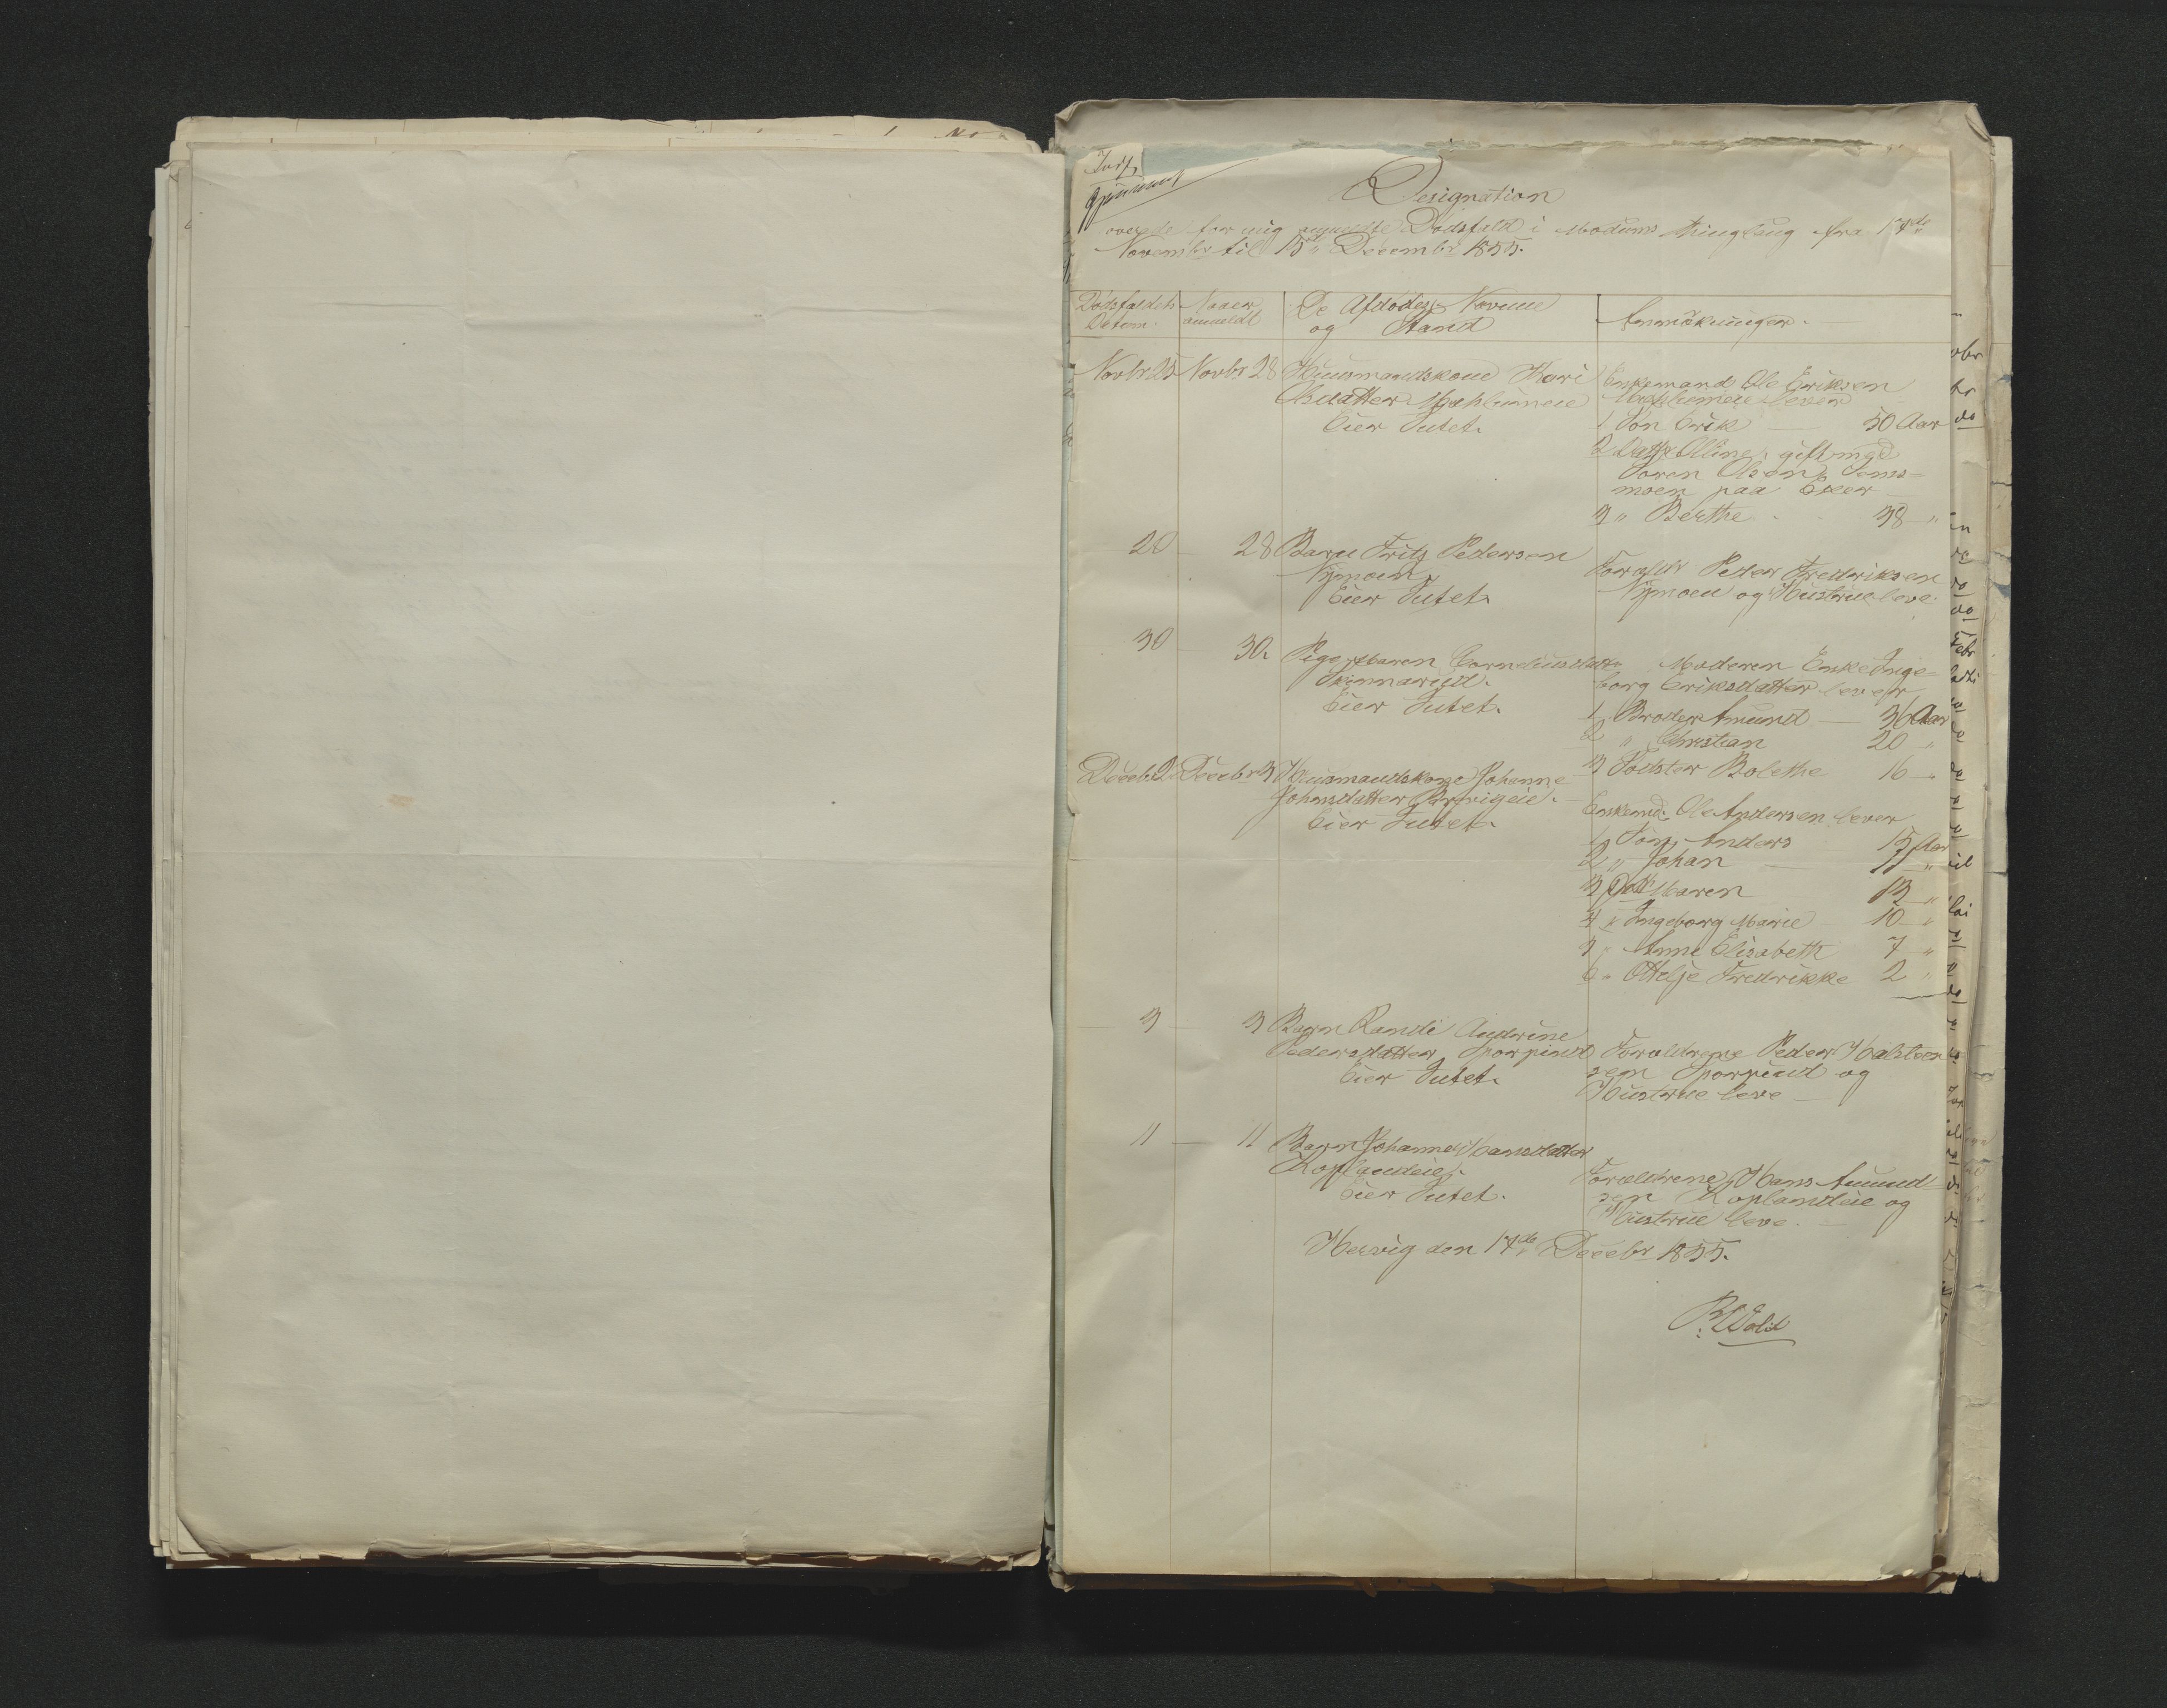 Designation
over de for mig anmeldte Dødsfald i Modums Thinglaug fra 17de
Novembr til 15de Decembr 1855.
Dødsfaldets Datum.
Naar anmeldt
De Afdødes Navne og Stand
Anmærkninger.
Novbr 25 Novbr 28 Huusmandskone Kari
Olsdatter
Eier Intet.
Enkemand Ole Eriksen
lever
1 Søn Erik — 50 Aar
2 Datter Oline, gift med
Søren Olsen
moen paa Eker
3 " Berthe 38 "
20 — 28 Barn Frits Pedersen
Nymoen,
Eier Intet.
Forældr Peder Fredriksen
Nymoen og Hustrue leve.
30 30. Pige Maren Corneliusdatter
Skinnarud.
Eier Intet.
Moderen Enke Inge-
borg Eriksdatter lever
1, Broder Amund — 36 Aar
2 " Christian 20 "
3 Sødster Bolethe 16 "
Decbr 2 Decebr 3 Huusmandskone Johanne
Johnsdatter
Eier Intet.
Enkemd. Ole Andersen lever
1, Søn, Anders 15 Aar
2 " Johan — 11 "
3 Dattr Maren 13 "
4 " Ingeborg Marie 10 "
5 " Anne Elisabeth 7 "
6 " Ottelje Fredrikke 2 "
— 3 — 3 Barn Randi Andrine
Pedersdatter Sporpind
Eier Intet.
Forældrene Peder Halsteen
sen Sporpind og
Hustrue leve —
11 — 11 Barn Johanne Hansdatter
Koplandeie.
Eier Intet.
Forældrene, Hans Amund
sen Koplandeie og
Hustrue leve. —
Hervig den 17de Decebr 1855.